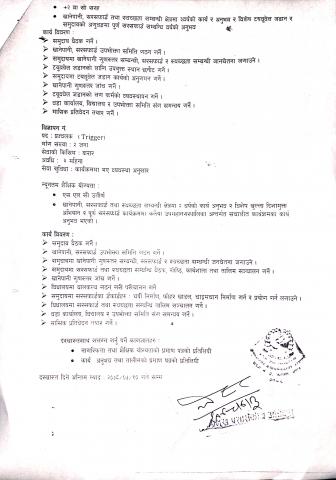 +२ वा सो सरह
खानेपानी, सरसफाई तथा स्वच्छता सम्बन्धी क्षेत्रमा वर्षको कार्य र अनुभव र विशेष ट्युबवेल जडान र
समुदायका अनुगमन पूर्ण सरसफाई सम्बन्धि वर्षको अनुभव
कार्य विवरण
समुदाय बैठक गर्ने ।
खानेपानी, सरसफाई उपभोक्ता समिति गठन गर्ने ।
समुदायमा खानेपानी गुणस्तर सम्बन्धी, सरसफाई र स्वच्छता सम्बन्धी जनचेतना जगाउने ।
ट्युबवेल जडानको लागि उपयुक्त स्थान छनौट गर्ने ।
समुदायमा ट्युबवेल जडान कार्यको अनुगमन गर्ने ।
खानेपानी गुणस्तर जाँच गर्ने ।
ट्युबवेल जडानको सम्पूर्ण व्यवस्थापन गर्ने ।
वडा कार्यालय, विद्यालय र उपभोक्ता समिति संग समन्वय गर्ने ।
मासिक प्रतिवेदन तयार गर्ने ।
विज्ञापन नं
पद : (Trigger)
माग संख्या : २ जना
सेवाको किसिम : करार
अवधि : महिना
सेवा सुविधा : कार्यक्रममा भए व्यवस्था अनुसार
न्यूनतम शैक्षिक योग्यता :
एस एल सी उत्तीर्ण
खानेपानी, सरसफाई तथा स्वच्छता सम्बन्धी क्षेत्रमा वर्षको कार्य अनुभव र विशेष खुल्ला दिशामुक्त
अभियान र पूर्ण सरसफाई कार्यक्रममा उपमहानगरपालिका अन्तर्गत संचालित कार्यक्रमका कार्य
अनुभव भएको ।
कार्य विवरण :
समुदाय बैठक गर्ने ।
खानेपानी, सरसफाई उपभोक्ता समिति गठन गर्ने ।
समुदायमा खानेपानी गुणस्तर सम्बन्धी, सरसफाई र स्वच्छता सम्बन्धी जनचेतना जगाउने ।
समुदायमा सरसफाई तथा स्वच्छता सम्बन्धि बैठक, गोष्ठि, कार्यशाला तथा तालिम सञ्चालन गर्ने ।
खानेपानी गुणस्तर जाँच गर्ने ।
विद्यालयमा बालक्लब गठन गरी परिचालन गर्ने
समुदायमा सरसफाईका चर्पी निर्माण, फोहर खाडल, चाङ्गमचान निर्माण गर्न र प्रयोग गर्न लगाउने ।
विद्यालयमा सरसफाई तथा स्वच्छता सम्बन्धि कार्यक्रम सञ्चालन गर्ने ।
वडा कार्यालय, विद्यालय र उपभोक्ता समिति संग समन्वय गर्ने ।
मासिक प्रतिवेदन तयार गर्ने ।
दरखास्तसाथ संलग्न गर्नु पर्ने कागजातहरु :
नागरिकता तथा शैक्षिक योग्यताको प्रमाण पत्रको प्रतिलिपी
कार्य अनुभव तथा तालीमको प्रमाण पत्रको प्रतिलिपी
दरखास्त दिने अन्तिम म्याद :